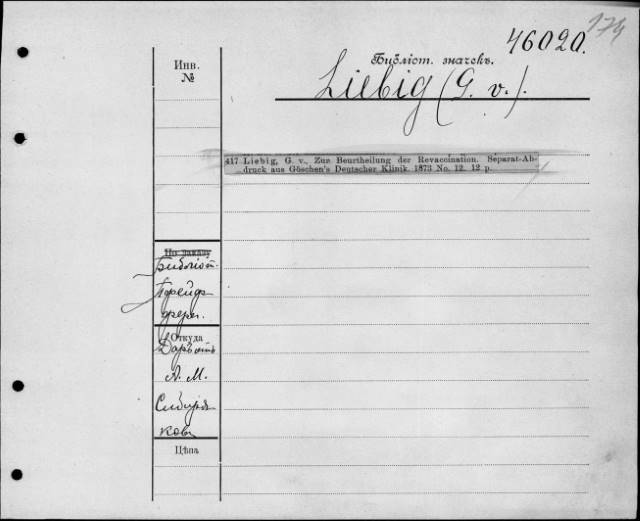 174
46020.
Библіот. значекъ.
Инв.
№
Liebig (G. v.).
417 Liebig, G. v., Zur Beurtheilung der Revaccination. Separat-Ab-
druck aus Göschen's Deutscher Klinik. 1873 No. 12. 12 p.
По заказу
Библіот.
Пфейф
фера.
Откуда
Даръ отъ
А. М.
Сибиря
кова
Цѣна